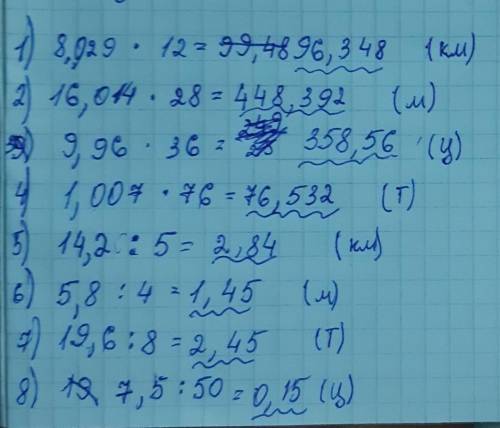 1) 8,029 · 12 = 96,348 (км)
2) 16,014 · 28 = 448,392 (м)
3) 9,96 · 36 = 358,56 (ц)
4) 1,007 · 76 = 76,532 (т)
5) 14,2 : 5 = 2,84 (км)
6) 5,8 : 4 = 1,45 (м)
7) 19,6 : 8 = 2,45 (т)
8) 7,5 : 50 = 0,15 (ц)